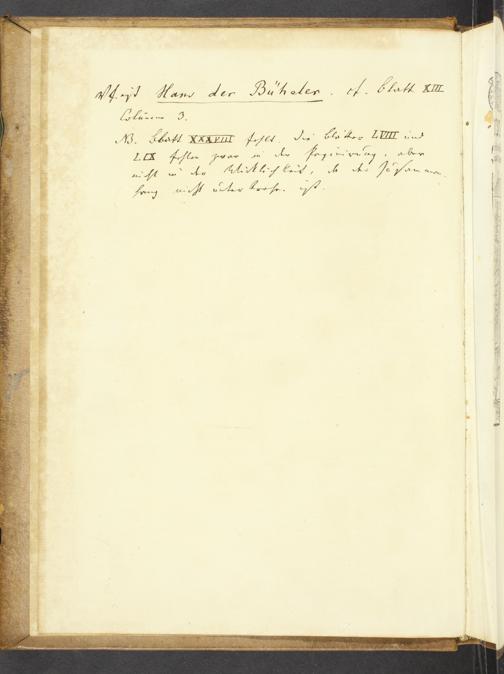 Vf. ist Hans der Büheler. cf. Blatt XIII
Columne 3.
NB. Blatt XXXVIII fehlt. Die Blätter LVIII und
LIX fehlen zwar in der Paginirung, aber
nicht in der Wirklichkeit, da der Zusammen-
hang nicht unterbrochen ist.